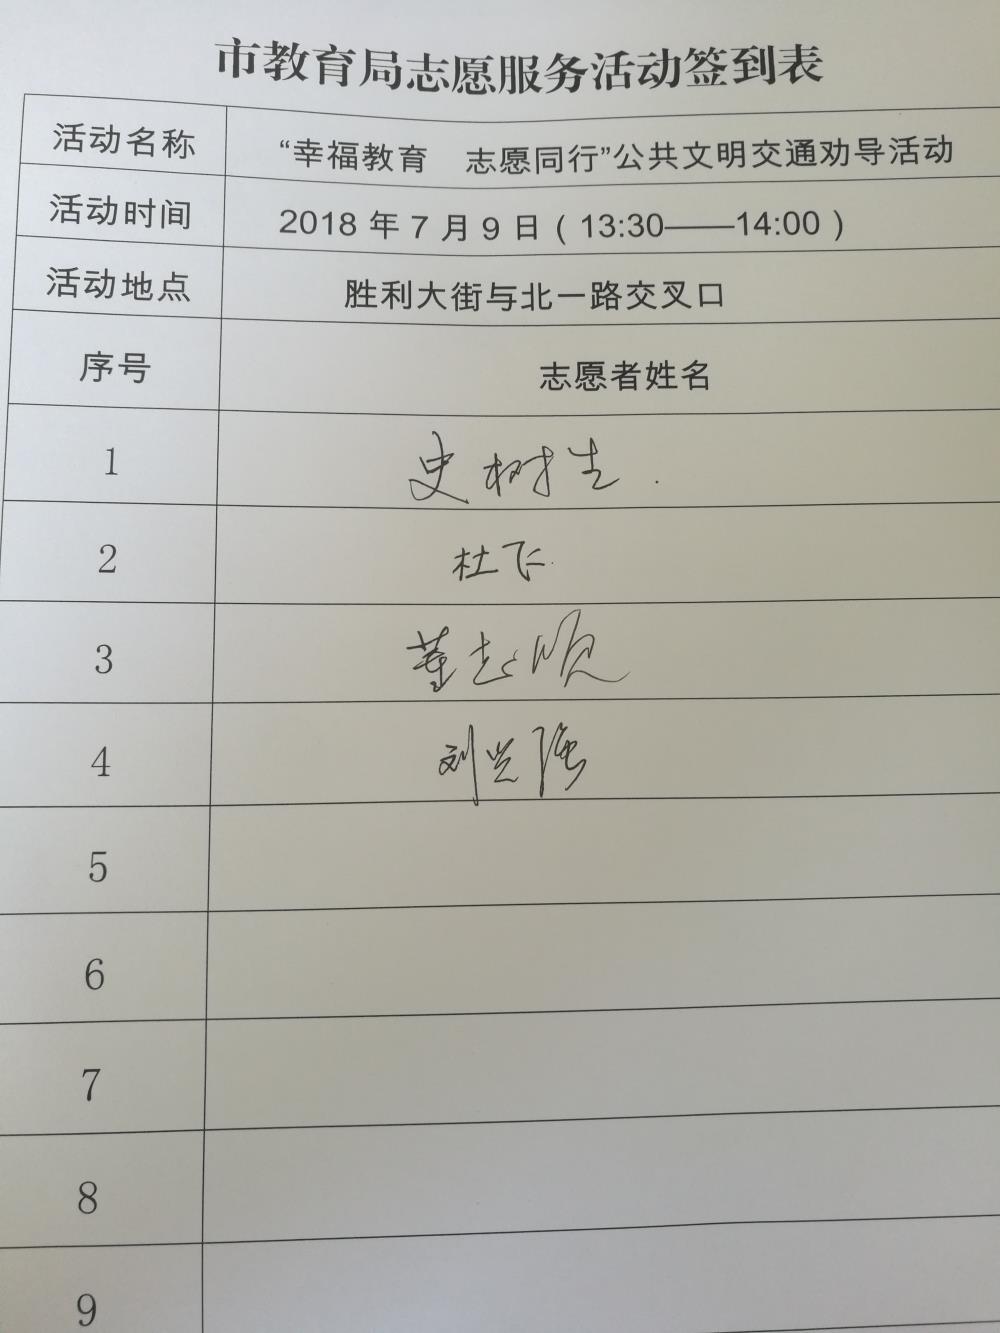 市教育局志愿服务活动签到表
活动名称 “幸福教育 志愿同行”公共文明交通劝导活动
活动时间 2018 年 7 月 9 日（13:30——14:00）
活动地点 胜利大街与北一路交叉口
序号 志愿者姓名
1 史树生
2 杜飞
3 董志顺
4 刘兴强
5
6
7
8
9